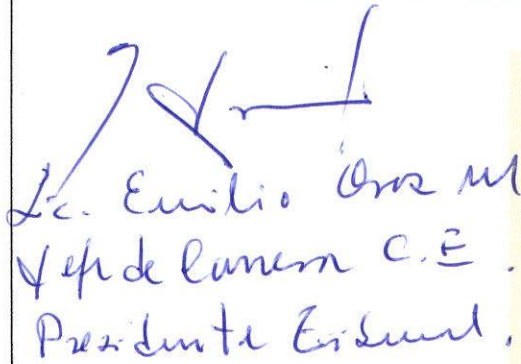 Lic. Emilio Oros M
Jefe de Carrera C.E.
Presidente Tribunal.